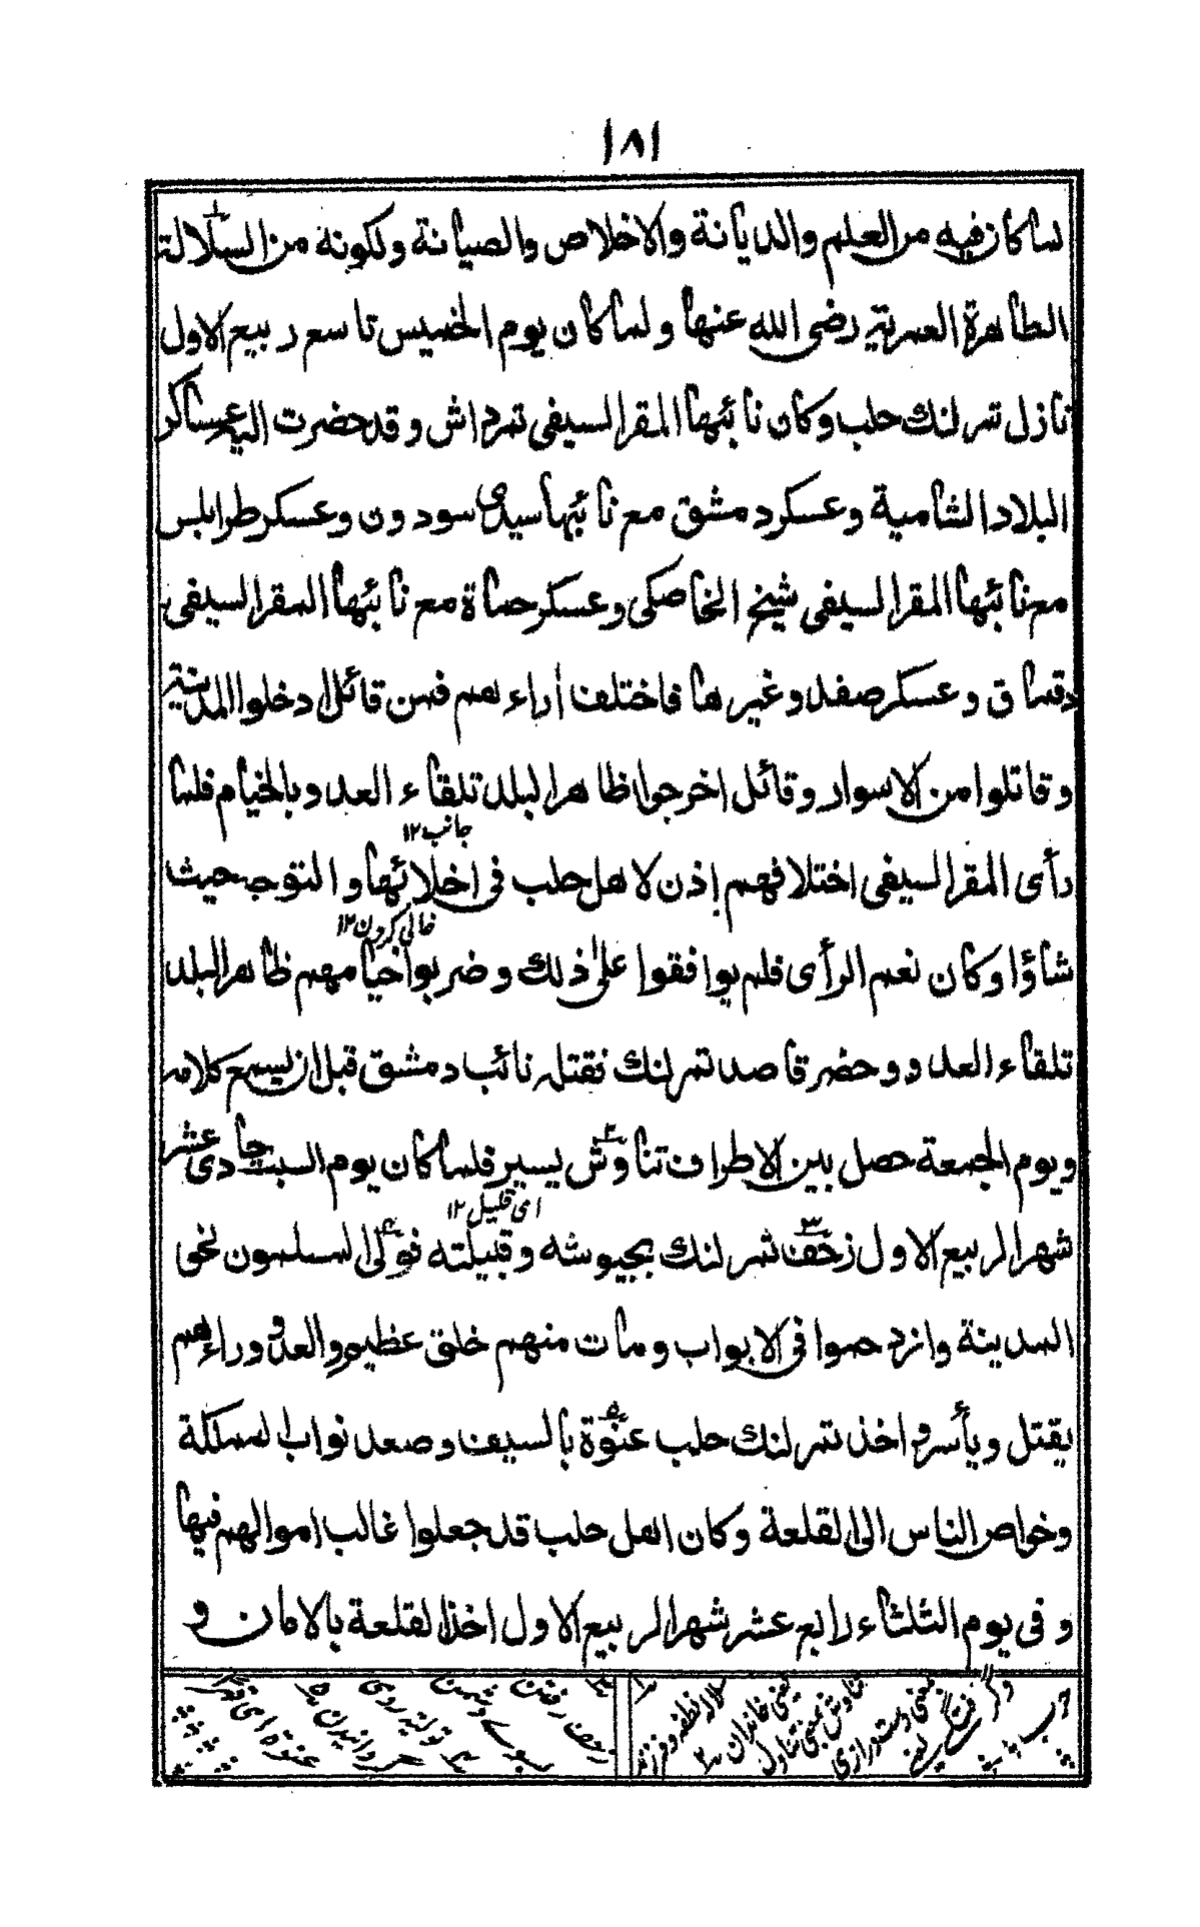 ١٨١
لما كان فيه من العلم والديانة والاخلاص والصيانة ولكونه من السلالة
الطاهرة العمرية رضى الله عنها ولما كان يوم الخميس تاسع ربيع الاول
نازل تمر لنك حلب وكان نائبها المقر السيفى تمرداش وقد حضرت اليه عساكر
البلاد الشامية وعسكر دمشق مع نائبها سيدى سودون وعسكر طرابلس
مع نائبها المقر السيفى شيخ الخاصكى وعسكر حماة مع نائبها المقر السيفى
دقماق وعسكر صفد وغيرها فاختلف أراء هم فمن قائل ادخلوا المدينة
وقاتلوا من الاسوار وقائل اخرجوا ظاهر البلد تلقاء العدو بالخيام فلما
جانب ١٢
رأى المقر السيفى اختلافهم إذن لاهل حلب فى اخلائها والتوجه حيث
خالى كردن ١٢
شاؤا وكان نعم الرأى فلم يوافقوا على ذلك وضربوا خيامهم ظاهر البلد
تلقاء العدو وحضر قاصد تمر لنك نقتله نائب دمشق قبل ان يسمع كلامه
ويوم الجمعة حصل بين الاطراف تناوش يسير فلما كان يوم السبت حادى عشر
اى قليل ١٢
شهر الربيع الاول زحف تمر لنك بجيوشه وقبيلته فولى المسلمون نحو
المدينة وازدحموا فى الابواب ومات منهم خلق عظيم والعدو وراءهم
يقتل ويأسر واخذ تمر لنك حلب عنوة بالسيف وصعد نواب المملكة
وخواص الناس الى القلعة وكان اهل حلب قد جعلوا غالب اموالهم فيها
وفى يوم الثلثاء رابع عشر شهر الربيع الاول اخذ القلعة بالامان و